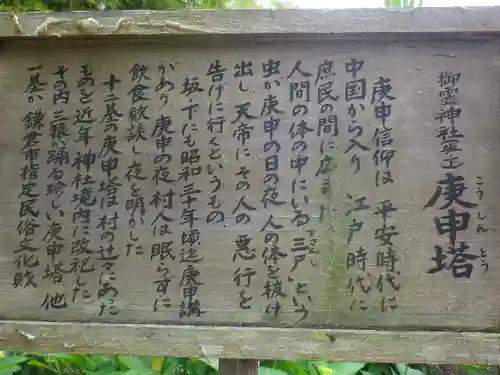 御霊神社坂ノ下 庚申塔
こうしん とう
庚申信仰は 平安時代に
中国から入り 江戸時代に
庶民の間に広まった
人間の体の中にいる三尸という
さんし
虫が庚申の日の夜 人の体を抜け
出し 天帝にその人の 悪行を
告げに行くというもの。
坂ノ下にも昭和三十年頃迄庚申講
があり 庚申の夜 村人は眠らずに
飲食歓談し 夜を明かした。
十二基の庚申塔は村の辻々にあった
ものを近年神社境内に改祀した
その内 三猿が踊る珍しい庚申塔 他
一基が 鎌倉市指定民俗文化財